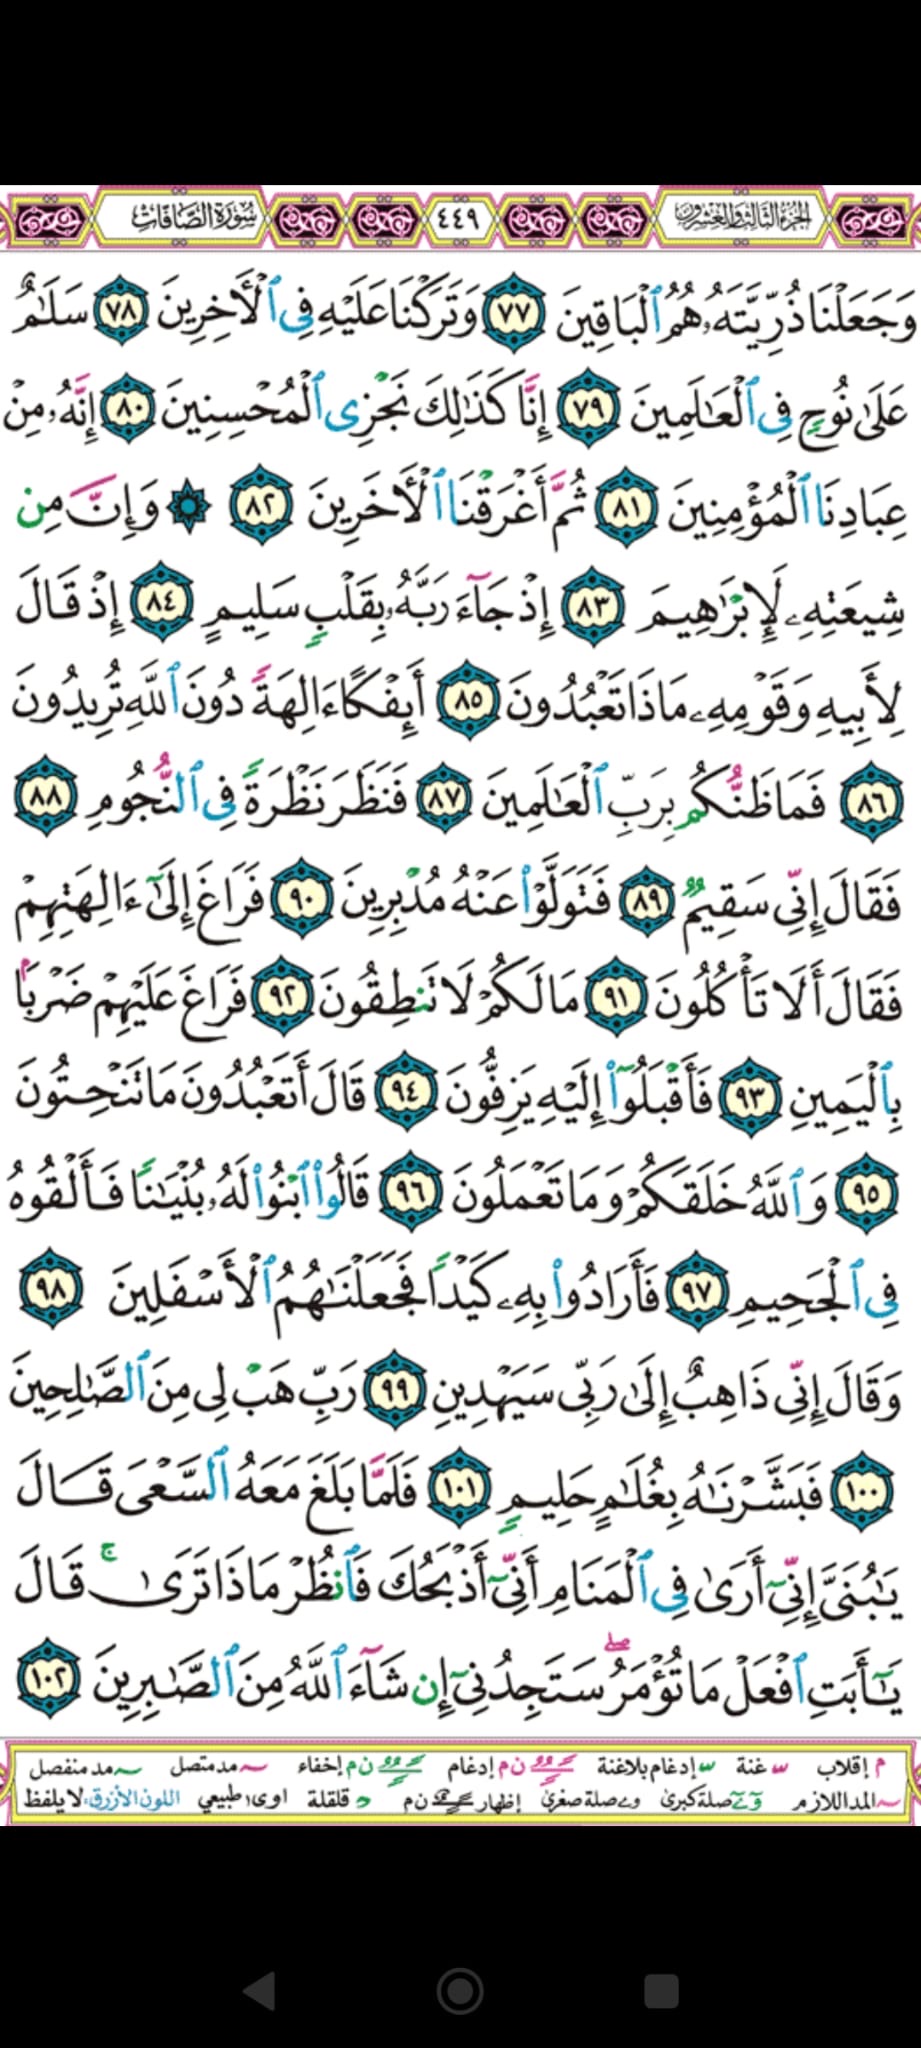 الجزء الثالث والعشرون ٤٤٩ سورة الصافات
وَجَعَلْنَا ذُرِّيَّتَهُۥ هُمُ ٱلْبَاقِينَ ٧٧ وَتَرَكْنَا عَلَيْهِ فِى ٱلْأَخِرِينَ ٧٨ سَلَٰمٌ
عَلَىٰ نُوحٍ فِى ٱلْعَٰلَمِينَ ٧٩ إِنَّا كَذَٰلِكَ نَجْزِى ٱلْمُحْسِنِينَ ٨٠ إِنَّهُۥ مِنْ
عِبَادِنَا ٱلْمُؤْمِنِينَ ٨١ ثُمَّ أَغْرَقْنَا ٱلْأَخَرِينَ ٨٢ ۞ وَإِنَّ مِن
شِيعَتِهِۦ لَإِبْرَٰهِيمَ ٨٣ إِذْ جَآءَ رَبَّهُۥ بِقَلْبٍ سَلِيمٍ ٨٤ إِذْ قَالَ
لِأَبِيهِ وَقَوْمِهِۦ مَاذَا تَعْبُدُونَ ٨٥ أَئِفْكًا ءَالِهَةً دُونَ ٱللَّهِ تُرِيدُونَ
٨٦ فَمَا ظَنُّكُم بِرَبِّ ٱلْعَٰلَمِينَ ٨٧ فَنَظَرَ نَظْرَةً فِى ٱلنُّجُومِ ٨٨
فَقَالَ إِنِّى سَقِيمٌ ٨٩ فَتَوَلَّوْا۟ عَنْهُ مُدْبِرِينَ ٩٠ فَرَاغَ إِلَىٰٓ ءَالِهَتِهِمْ
فَقَالَ أَلَا تَأْكُلُونَ ٩١ مَا لَكُمْ لَا تَنطِقُونَ ٩٢ فَرَاغَ عَلَيْهِمْ ضَرْبًۢا
بِٱلْيَمِينِ ٩٣ فَأَقْبَلُوٓا۟ إِلَيْهِ يَزِفُّونَ ٩٤ قَالَ أَتَعْبُدُونَ مَا تَنْحِتُونَ
٩٥ وَٱللَّهُ خَلَقَكُمْ وَمَا تَعْمَلُونَ ٩٦ قَالُوا۟ ٱبْنُوا۟ لَهُۥ بُنْيَٰنًا فَأَلْقُوهُ
فِى ٱلْجَحِيمِ ٩٧ فَأَرَادُوا۟ بِهِۦ كَيْدًا فَجَعَلْنَٰهُمُ ٱلْأَسْفَلِينَ ٩٨
وَقَالَ إِنِّى ذَاهِبٌ إِلَىٰ رَبِّى سَيَهْدِينِ ٩٩ رَبِّ هَبْ لِى مِنَ ٱلصَّٰلِحِينَ
١٠٠ فَبَشَّرْنَٰهُ بِغُلَٰمٍ حَلِيمٍ ١٠١ فَلَمَّا بَلَغَ مَعَهُ ٱلسَّعْىَ قَالَ
يَٰبُنَىَّ إِنِّىٓ أَرَىٰ فِى ٱلْمَنَامِ أَنِّىٓ أَذْبَحُكَ فَٱنظُرْ مَاذَا تَرَىٰ ۚ قَالَ
يَٰٓأَبَتِ ٱفْعَلْ مَا تُؤْمَرُ ۖ سَتَجِدُنِىٓ إِن شَآءَ ٱللَّهُ مِنَ ٱلصَّٰبِرِينَ ١٠٢
م إقلاب غنة إدغام بلاغنة ن م إدغام ن م إخفاء مد متصل مد منفصل
المد اللازم صلة كبرى صلة صغرى إظهار ن م قلقلة اوى طبيعي اللون الأزرق لا يلفظ